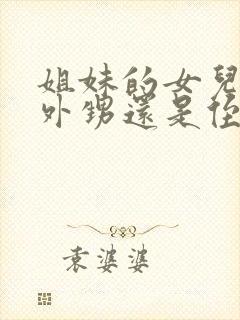 姐妹的女兒
外甥還是侄
袁婆婆